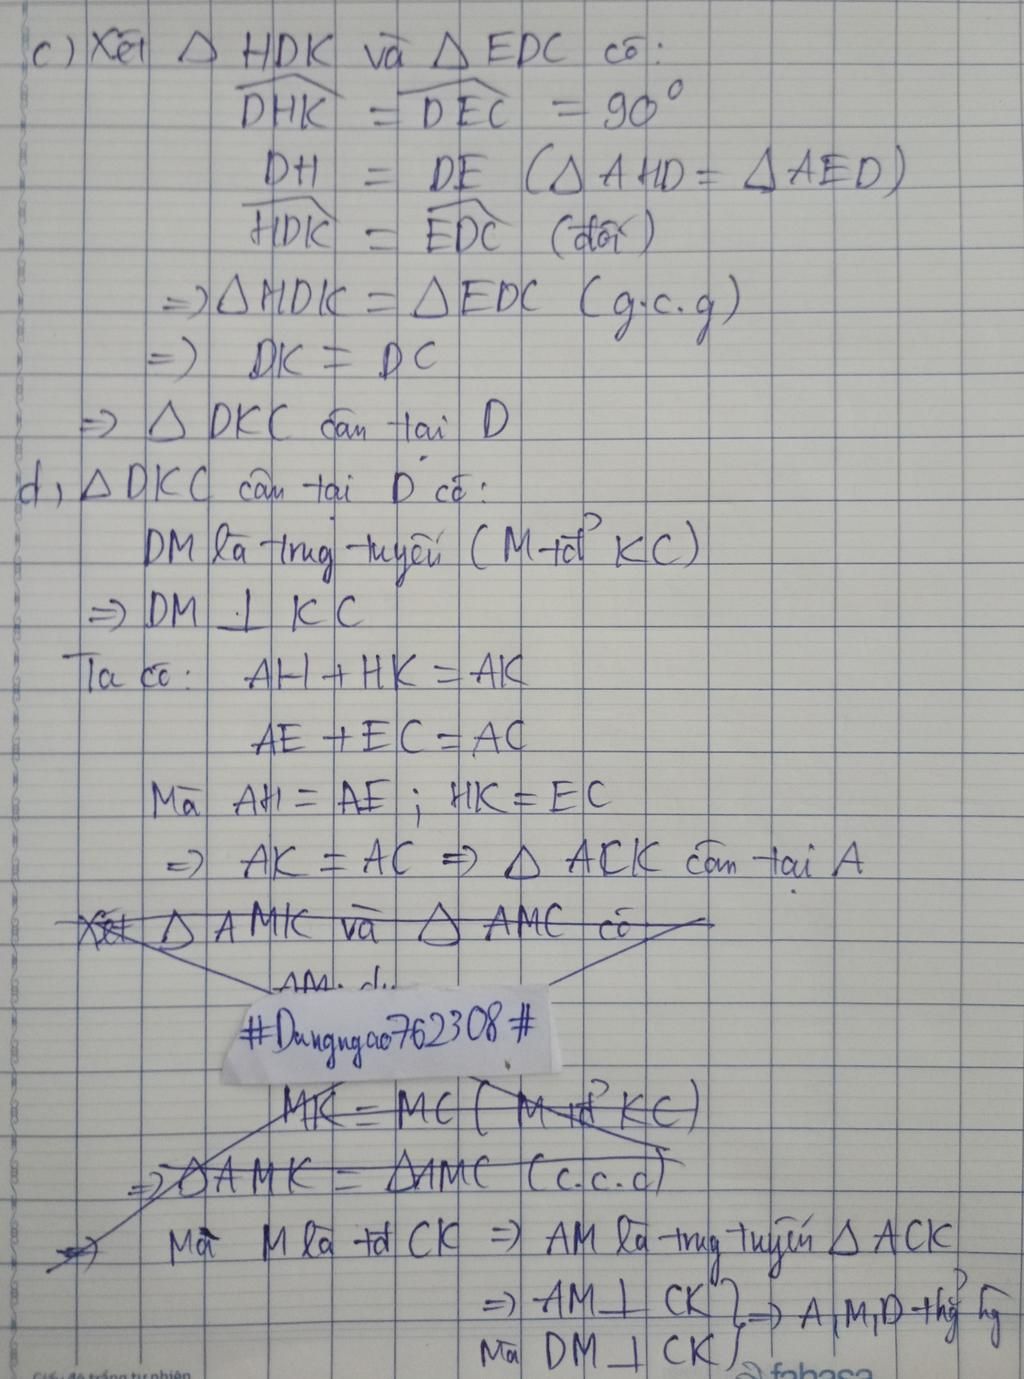 c) Xét Δ HDK và Δ EDC có:
DHK = DEC = 90°
DH = DE (Δ AHD = Δ AED)
HDK = EDC (đối)
=> Δ HDK = Δ EDC (g.c.g)
=> DK = DC
=> Δ DKC cân tại D
d, Δ DKC cân tại D có:
DM là trng tuyến (M tđ KC)
=> DM ⊥ KC
Ta có: AH + HK = AK
AE + EC = AC
Mà AH = AE ; HK = EC
=> AK = AC => Δ ACK cân tại A
Xét Δ AMK và Δ AMC có
#Dungngao762308#
MK = MC (M tđ KC)
=> Δ AMK = Δ AMC (c.c.c)
=> Mà M là tđ CK => AM là trng tuyến Δ ACK
=> AM ⊥ CK } => A, M, D thg hg
Mà DM ⊥ CK
Giấy đó trắng tự nhiên
fahasa